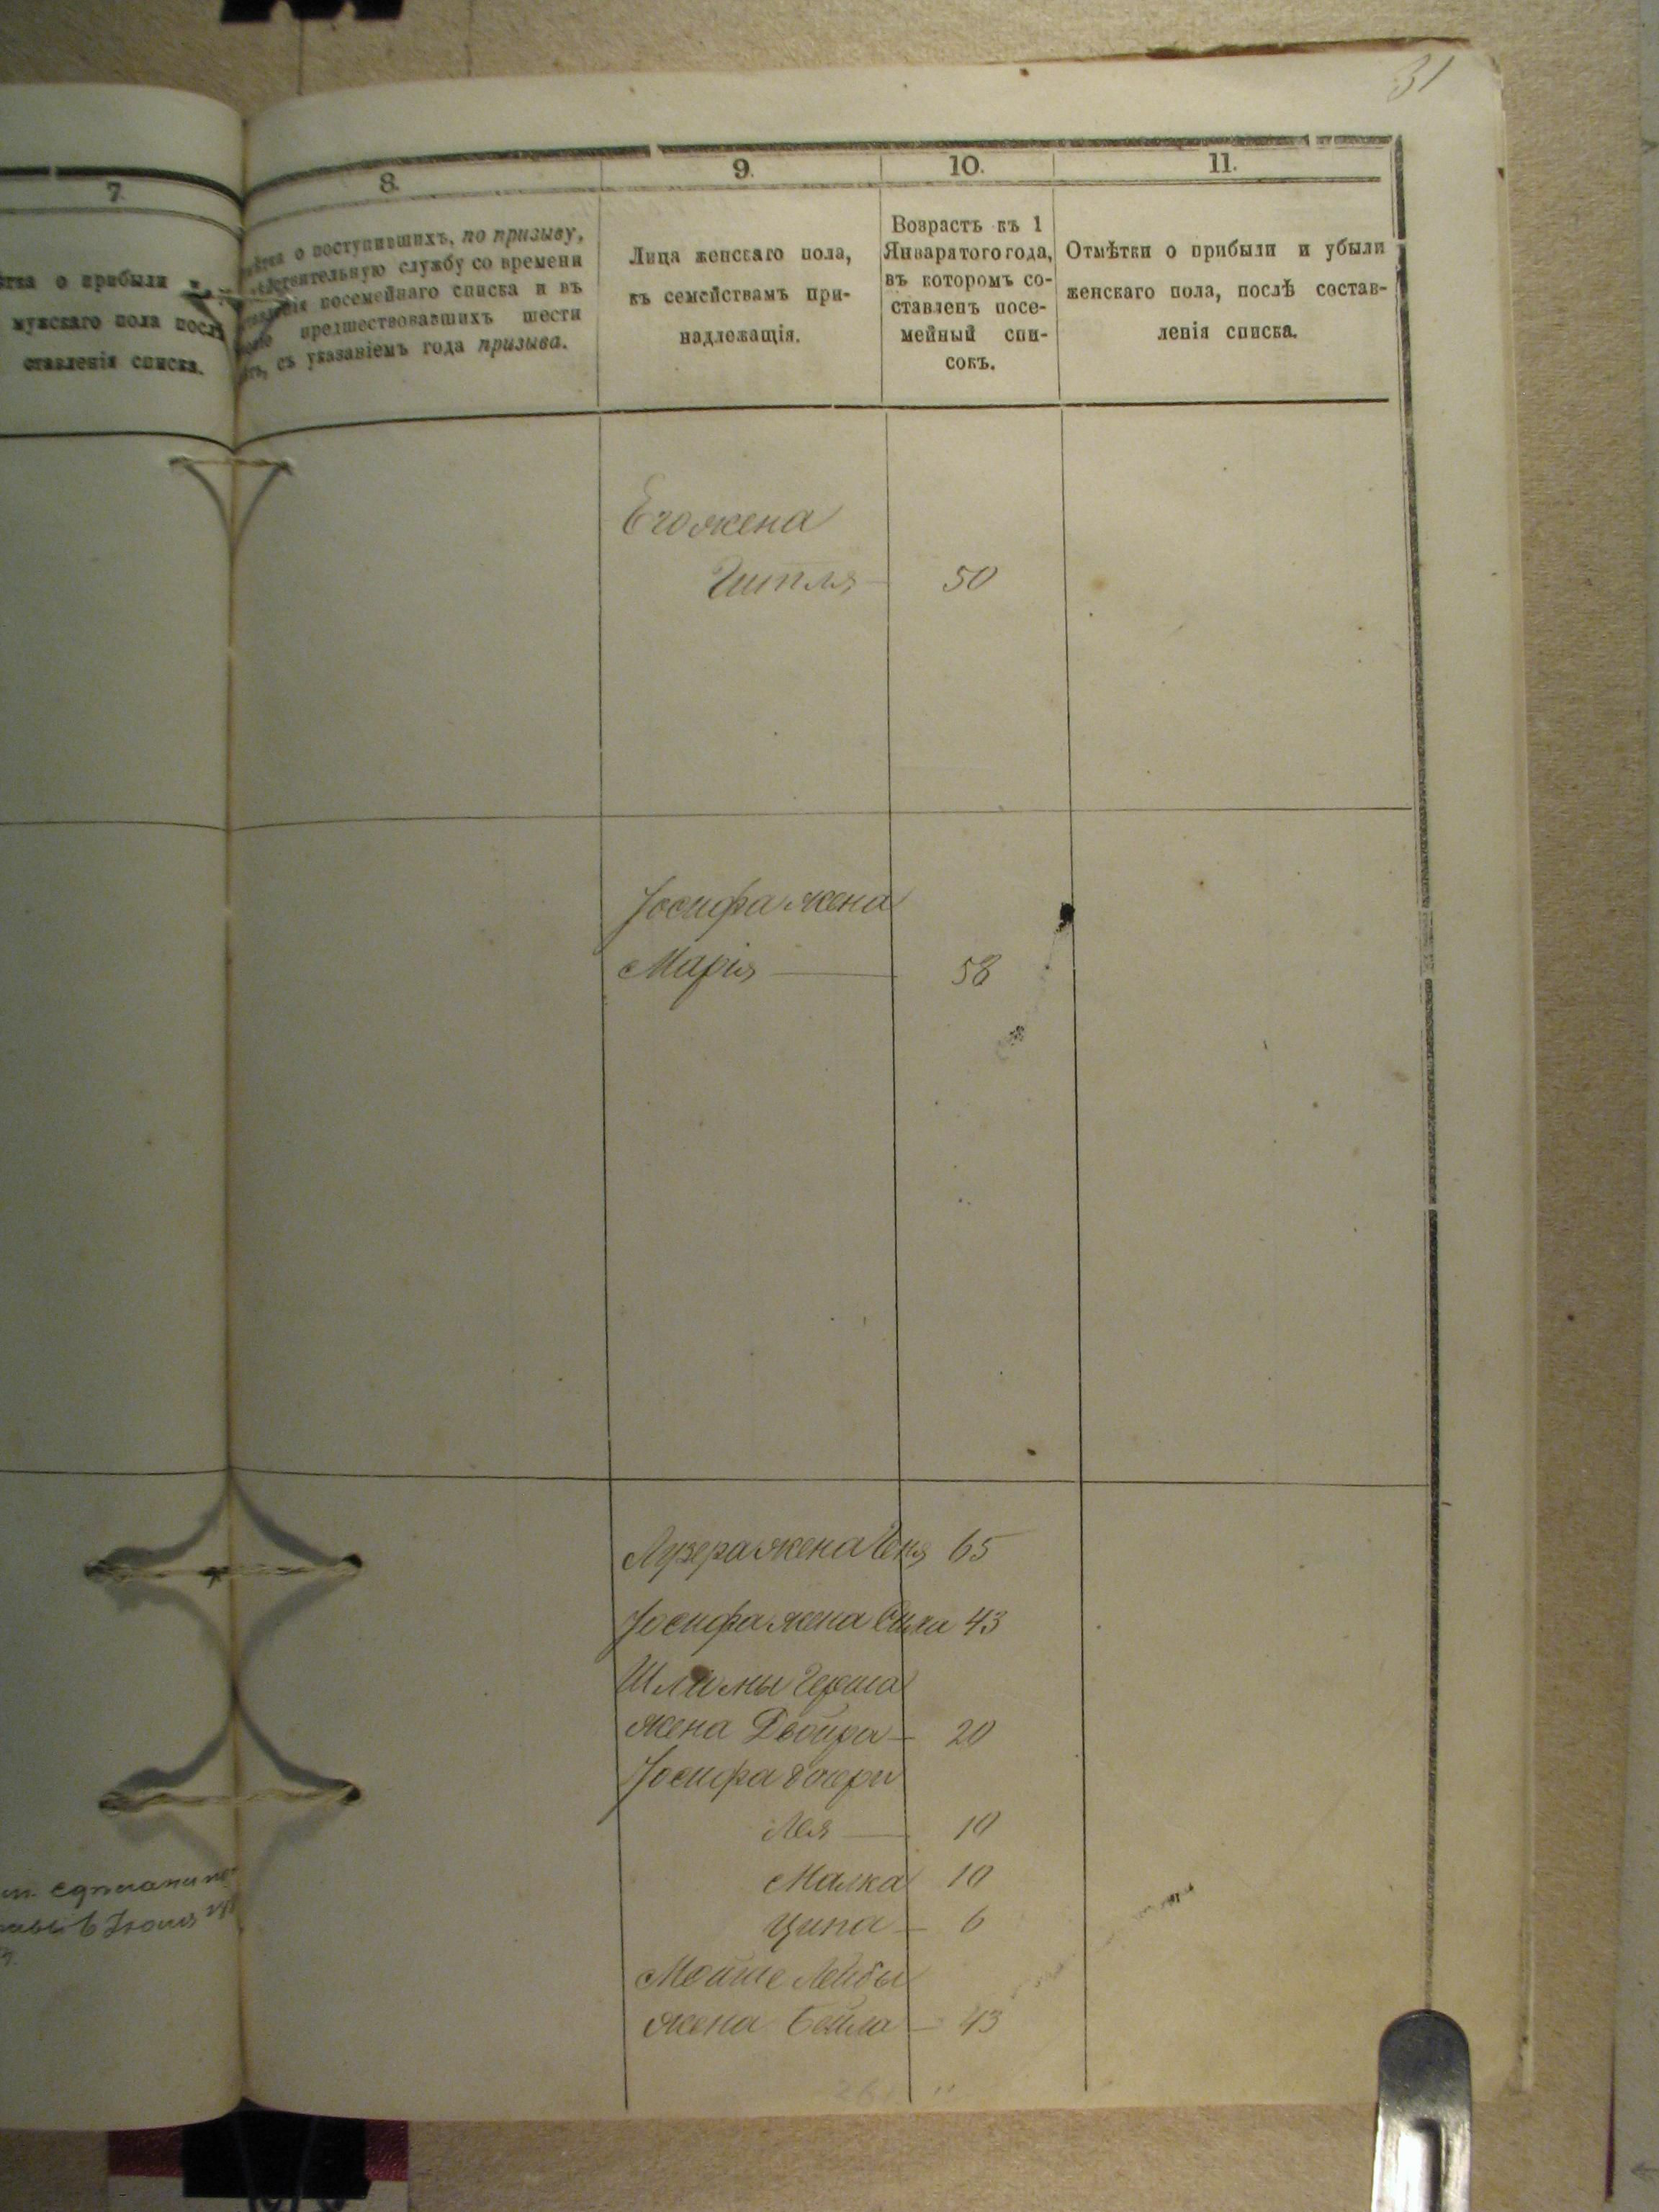 31
7. 8. 9. 10. 11.
о прибыли
мужскаго пола послѣ
ставленія списка.
о поступившихъ, по призыву,
службу со времени
посемейнаго списка и въ
предшествовавшихъ шести
съ указаніемъ года призыва.
Лица женскаго пола,
къ семействамъ при-
надлежащія.
Возрастъ къ 1
Января того года,
въ которомъ со-
ставленъ посе-
мейный спи-
сокъ.
Отмѣтки о прибыли и убыли
женскаго пола, послѣ состав-
ленія списка.
Его жена
Гитля 50
Іосифа жена
Марія 58
Лузера жена Геня 65
Іосифа жена 43
Шлиомы Герша
жена Двойра 20
Іосифа дочери
Лея 10
Малка 10
Ципа 6
Мойше Лейбы
жена Бейла 43